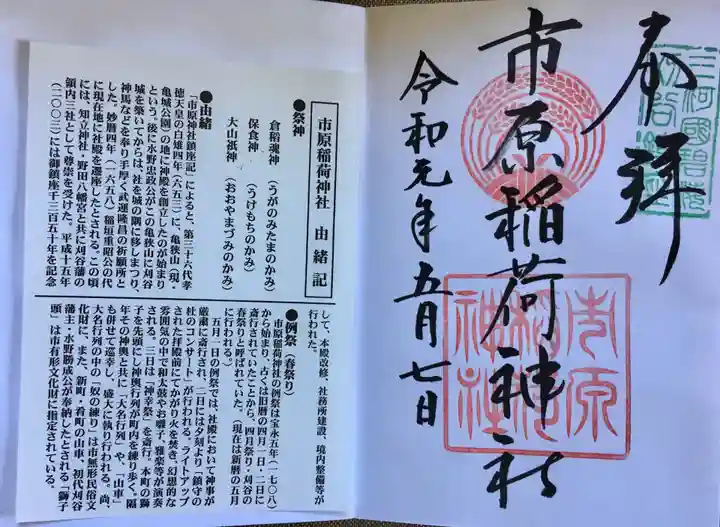 奉拝
市原稲荷神社
令和元年五月七日
市原稲荷神社
市原稲荷神社 由緒記
●祭神
倉稲魂神 (うがのみたまのかみ)
保食神 (うけもちのかみ)
大山祇神 (おおやまづみのかみ)
●由緒
「市原神社鎮座記」によると、第三十六代孝
徳天皇の白雉四年(六五三)に、亀狭山(現・
亀城公園)の地に神殿を創立したのが始まり
という。後に水野忠政公がこの亀狭山に刈谷
城を築いてからは、社を城の隅に移しまつり、
神馬などを奉り手厚く武運隆昌の祈願所と
した。妙暦四年(一六五八)稲垣重昭公の代
に現在地に社殿を遷座したとされる。この頃
には、知立神社・野田八幡宮と共に刈谷藩の
領内三社として尊崇を受けた。平成十五年
(二〇〇三)には御鎮座千三百五十年を記念
して、本殿改修、社務所建設、境内整備等が
行われた。
●例祭(春祭り)
市原稲荷神社の例祭は宝永五年(一七〇八)
から始まり、古くは旧暦の四月一日・二日に
斎行されていたことから、四月祭り・刈谷の
春祭りと呼ばれていた。(現在は新暦の五月
に行われる。)
五月一日の例祭では、社殿において神事が
厳粛に斎行され、二日には夕刻より「鎮守の
杜のコンサート」が行われる。ライトアップ
された拝殿前にてかがり火を焚き、幻想的な
雰囲気の中で和太鼓やお囃子、雅楽等が演奏
される。三日は「神幸祭」を斎行。本町の獅
子を先頭にし神輿行列が町内を練り歩く。隔
年その神輿と共に「大名行列」や、「山車」
も併せて巡幸し、盛大に執り行われる。尚、
大名行列の中の「奴の練り」は市無形民俗文
化財に、また、新町・肴町の山車、初代刈谷
藩主・水野勝成公が奉納したとされる「獅子
頭」は市有形文化財に指定されている。